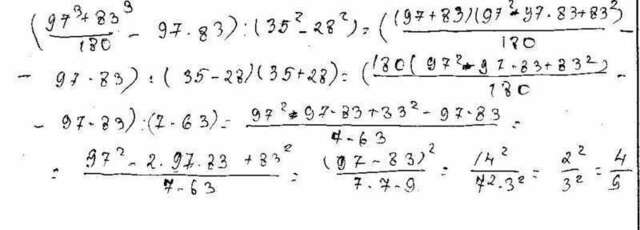 (97³+83³/180 - 97.83) : (35²-28²) = ((97+83)(97²-97.83+83²)/180 -
- 97.83) : (35-28)(35+28) = (180(97²-97.83+83²)/180 -
- 97.83) : (7-63) = 97²-97.83+33²-97.83/7-63 =
= 97²-2.97.83+83²/7-63 = (97-83)²/7.7-9 = 14²/7².3² = 2²/3² = 4/9